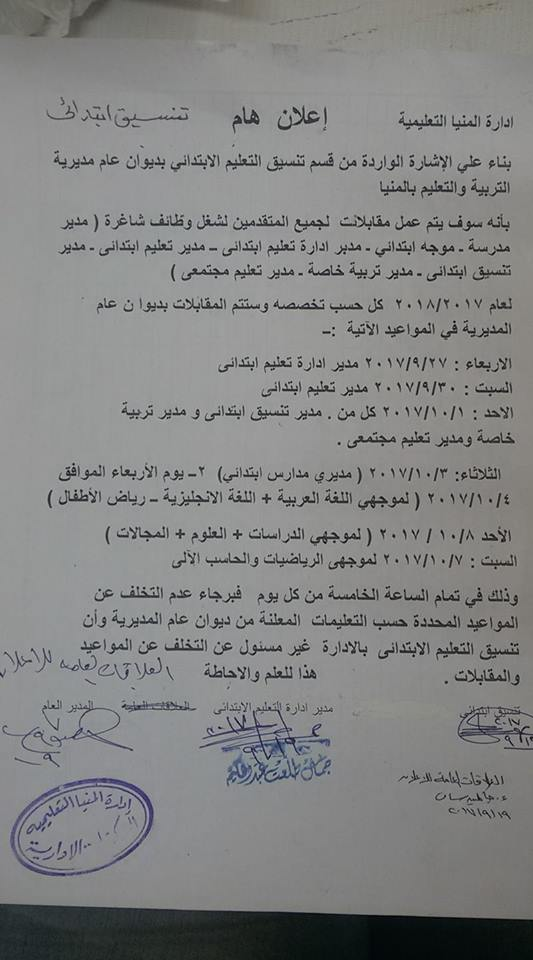 ادارة المنيا التعليمية إعلان هام تنسيق ابتدائى
بناء علي الإشارة الواردة من قسم تنسيق التعليم الابتدائي بديوان عام مديرية
التربية والتعليم بالمنيا
بأنه سوف يتم عمل مقابلات لجميع المتقدمين لشغل وظائف شاغرة ( مدير
مدرسة - موجه ابتدائي - مدير ادارة تعليم ابتدائى – مدير تعليم ابتدائى - مدير
تنسيق ابتدائى - مدير تربية خاصة - مدير تعليم مجتمعى )
لعام ٢٠١٨/٢٠١٧ كل حسب تخصصه وستتم المقابلات بديوا ن عام
المديرية في المواعيد الآتية :–
الاربعاء : ٢٠١٧/٩/٢٧ مدير ادارة تعليم ابتدائى
السبت : ٢٠١٧/٩/٣٠ مدير تعليم ابتدائى
الاحد : ٢٠١٧/١٠/١ كل من . مدير تنسيق ابتدائى و مدير تربية
خاصة ومدير تعليم مجتمعى .
الثلاثاء: ٢٠١٧/١٠/٣ ( مديري مدارس ابتدائي) ٢– يوم الأربعاء الموافق
٢٠١٧/١٠/٤ ( لموجهي اللغة العربية + اللغة الانجليزية – رياض الأطفال )
الأحد ١٠/٨ / ٢٠١٧ ( لموجهي الدراسات + العلوم + المجالات )
السبت : ٢٠١٧/١٠/٧ لموجهى الرياضيات والحاسب الآلى
وذلك في تمام الساعة الخامسة من كل يوم فبرجاء عدم التخلف عن
المواعيد المحددة حسب التعليمات المعلنة من ديوان عام المديرية وأن
تنسيق التعليم الابتدائى بالادارة غير مسئول عن التخلف عن المواعيد
والمقابلات . هذا للعلم والاحاطة العلاقات العامه للاعلان
تنسيق ابتدائى مدير ادارة التعليم الابتدائى العلاقات العامة المدير العام
٢٠١٧
جمال طلعت عبد الحكيم
العلاقات العامة للاعلان
٢٠١٧/٩/١٩
إدارة المنيا التعليمية
الادارية